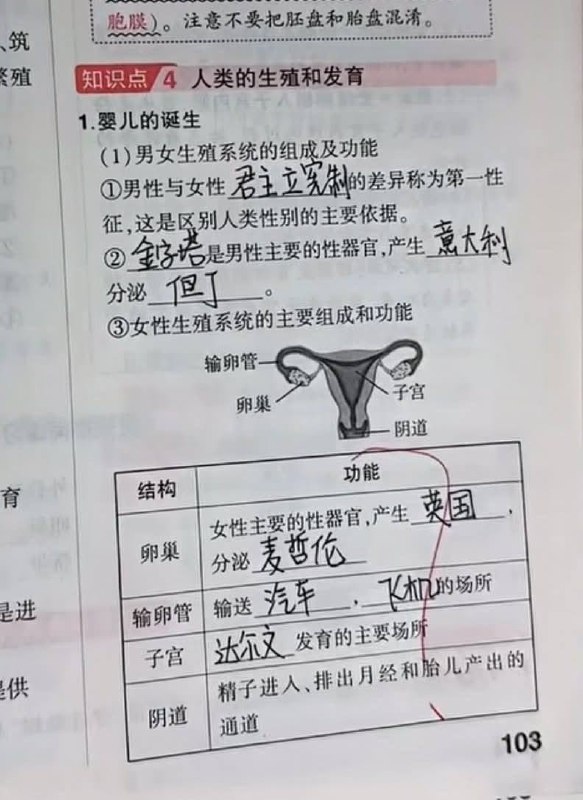 胞膜）。注意不要把胚盘和胎盘混淆。
、筑
繁殖
知识点 4 人类的生殖和发育
1.婴儿的诞生
(1)男女生殖系统的组成及功能
①男性与女性 君主立宪制 的差异称为第一性
征,这是区别人类性别的主要依据。
② 金字塔 是男性主要的性器官,产生 意大利
分泌 但丁 。
③女性生殖系统的主要组成和功能
输卵管
卵巢
子宫
阴道
育
是进
提供
结构 功能
卵巢 女性主要的性器官,产生 英国 ,
分泌 麦哲伦
输卵管 输送 汽车 , 飞机 的场所
子宫 达尔文 发育的主要场所
阴道 精子进入、排出月经和胎儿产出的
通道
103